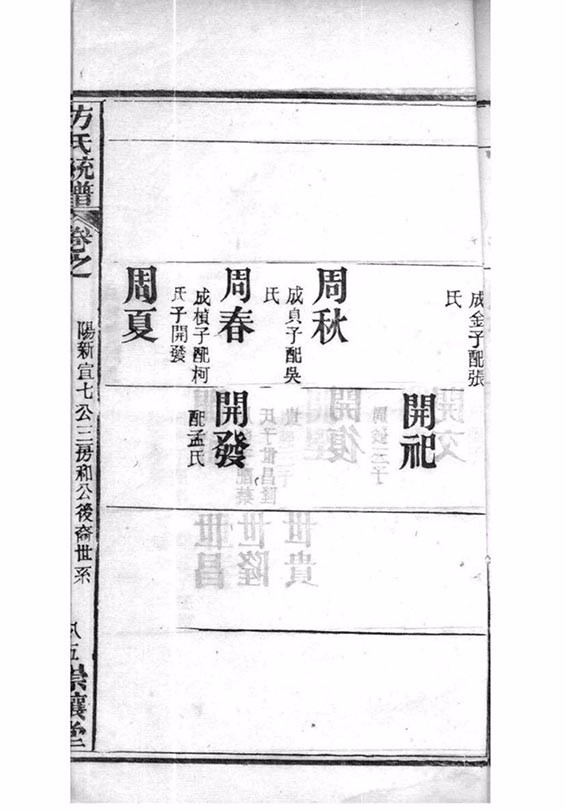 成金子配張
氏
開祀
周秋
成貞子配吳
氏
周春
成楨子配柯
氏子開發
開發
配孟氏
周夏
方氏統譜
卷之
陽新宣七公三房和公後裔世系
八五
崇讓堂